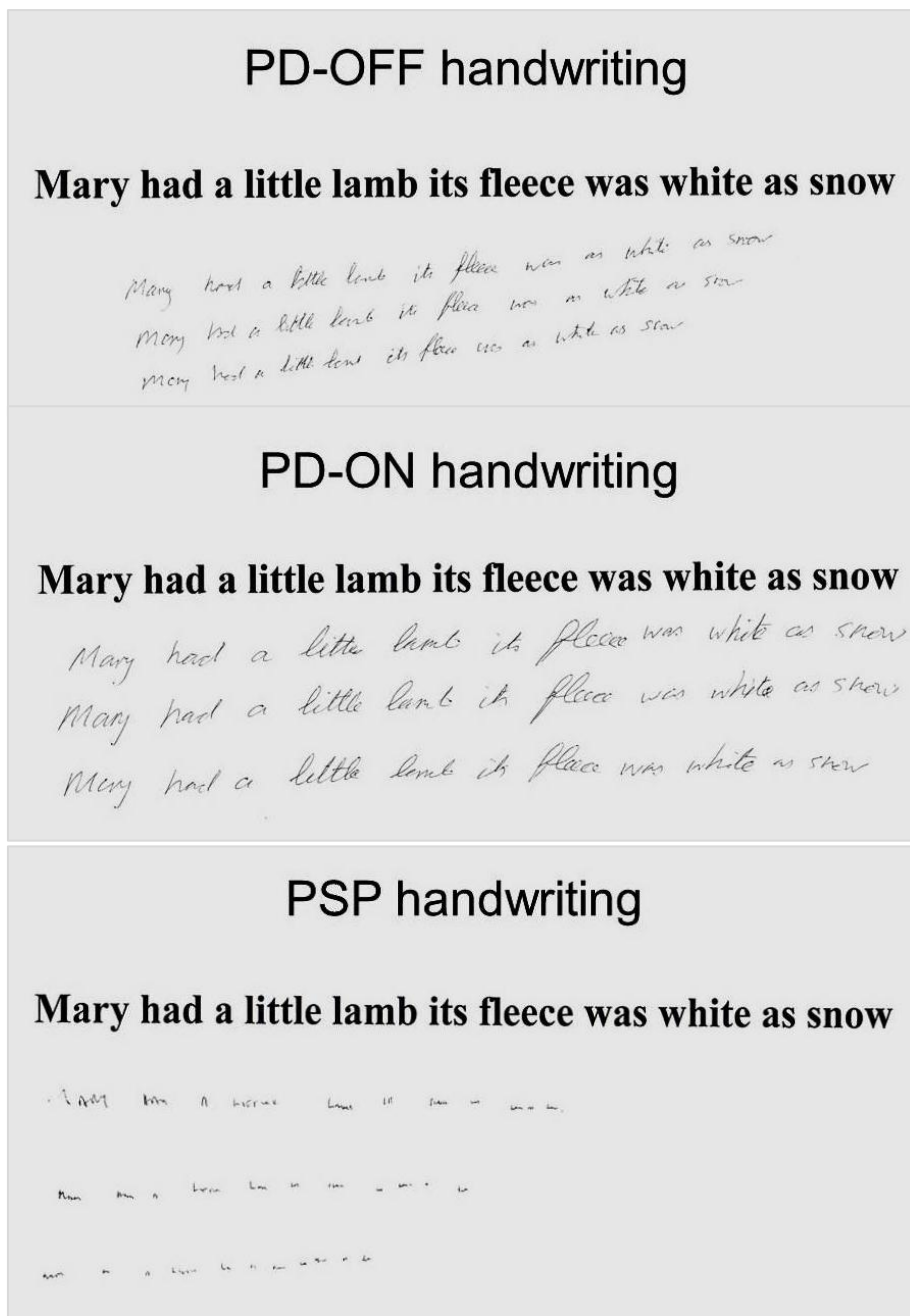 PD-OFF handwriting
Mary had a little lamb its fleece was white as snow
Mary had a little lamb its fleece was as white as snow
Mary had a little lamb its fleece was as white as snow
Mary had a little lamb its fleece was as white as snow
PD-ON handwriting
Mary had a little lamb its fleece was white as snow
Mary had a little lamb its fleece was white as snow
Mary had a little lamb its fleece was white as snow
Mary had a little lamb its fleece was white as snow
PSP handwriting
Mary had a little lamb its fleece was white as snow
MARY A